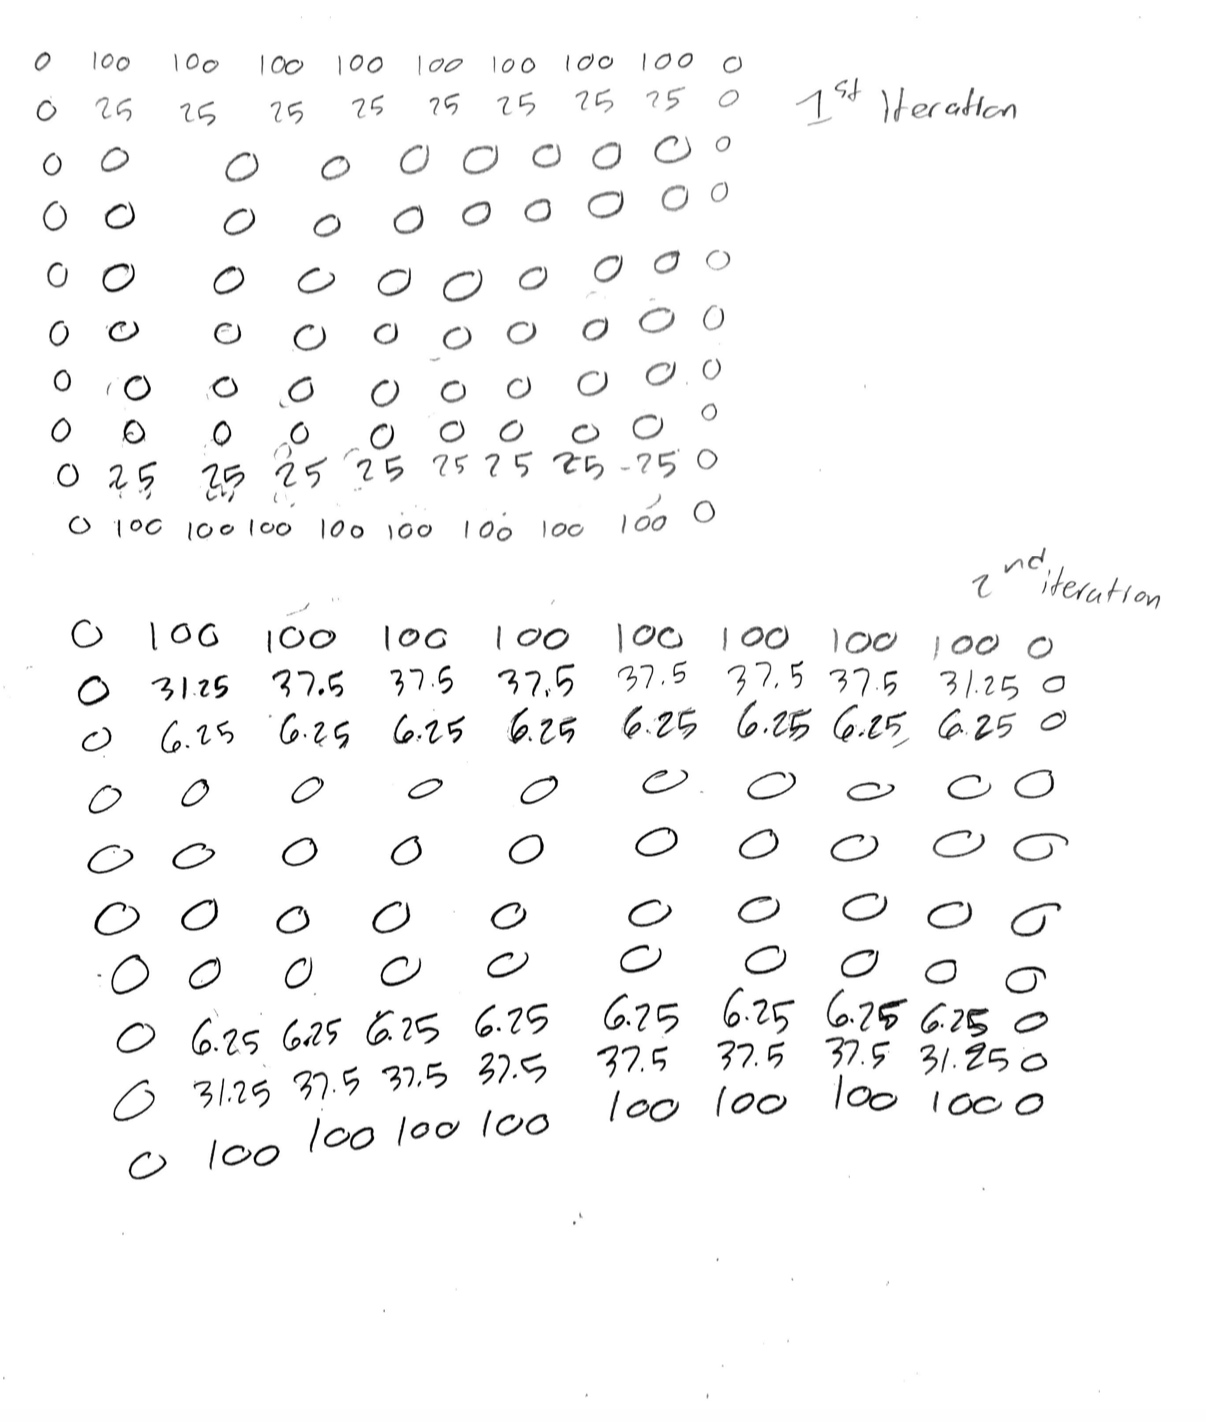 0 100 100 100 100 100 100 100 100 0
0 25 25 25 25 25 25 25 25 0 1st Iteration
0 0 0 0 0 0 0 0 0 0
0 0 0 0 0 0 0 0 0 0
0 0 0 0 0 0 0 0 0 0
0 0 0 0 0 0 0 0 0 0
0 0 0 0 0 0 0 0 0 0
0 0 0 0 0 0 0 0 0 0
0 25 25 25 25 25 25 25 25 0
0 100 100 100 100 100 100 100 100 0
2nd iteration
0 100 100 100 100 100 100 100 100 0
0 31.25 37.5 37.5 37.5 37.5 37.5 37.5 31.25 0
0 6.25 6.25 6.25 6.25 6.25 6.25 6.25 6.25 0
0 0 0 0 0 0 0 0 0 0
0 0 0 0 0 0 0 0 0 0
0 0 0 0 0 0 0 0 0 0
0 0 0 0 0 0 0 0 0 0
0 6.25 6.25 6.25 6.25 6.25 6.25 6.25 6.25 0
0 31.25 37.5 37.5 37.5 37.5 37.5 37.5 31.25 0
0 100 100 100 100 100 100 100 100 0